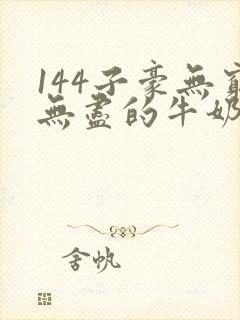 144子豪無窮
無盡的牛奶
舍帆